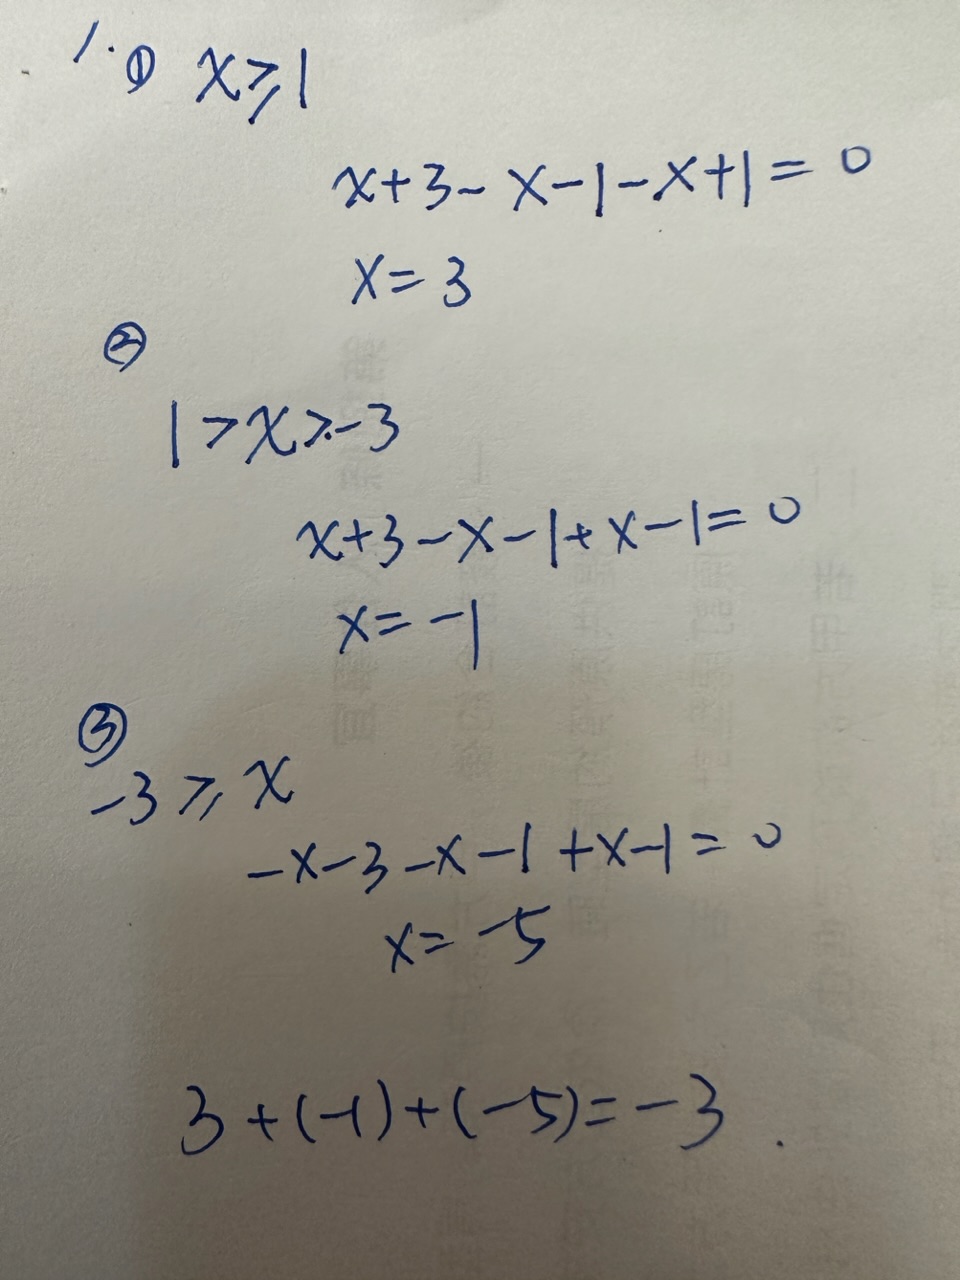 1. ① x≥1
x+3-x-1-x+1=0
x=3
②
1>x>-3
x+3-x-1+x-1=0
x=-1
③
-3≥x
-x-3-x-1+x-1=0
x=-5
3+(-1)+(-5)=-3.